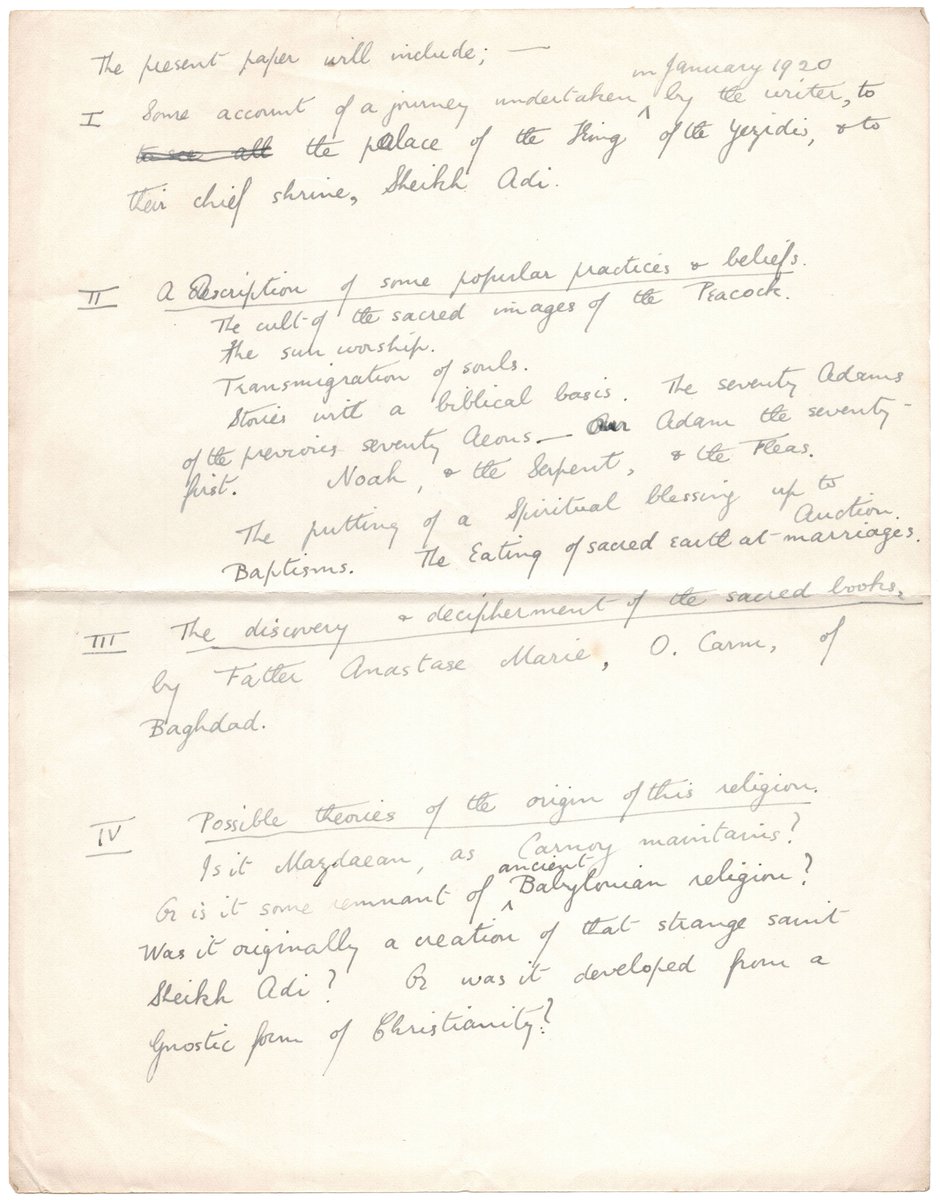 The present paper will include; —
in January 1920
I Some account of a journey undertaken ^ by the writer, to
to see all the palace of the King of the Yezidis, & to
their chief shrine, Sheikh Adi.
II A Description of some popular practices & beliefs.
The cult of the sacred images of the Peacock.
The sun worship.
Transmigration of souls.
Stories with a biblical basis. The seventy Adams
of the previous seventy Aeons — Our Adam the seventy-
first. Noah, & the Serpent, & the Fleas.
The putting of a Spiritual blessing up to
Auction.
Baptisms. The Eating of sacred earth at marriages.
III The discovery & decipherment of the sacred books,
by Father Anastase Marie, O. Carm, of
Baghdad.
IV Possible theories of the origin of this religion.
Is it Mazdaean, as Carnoy maintains?
ancient
Or is it some remnant of ^ Babylonian religion?
Was it originally a creation of that strange saint
Sheikh Adi? Or was it developed from a
Gnostic form of Christianity?